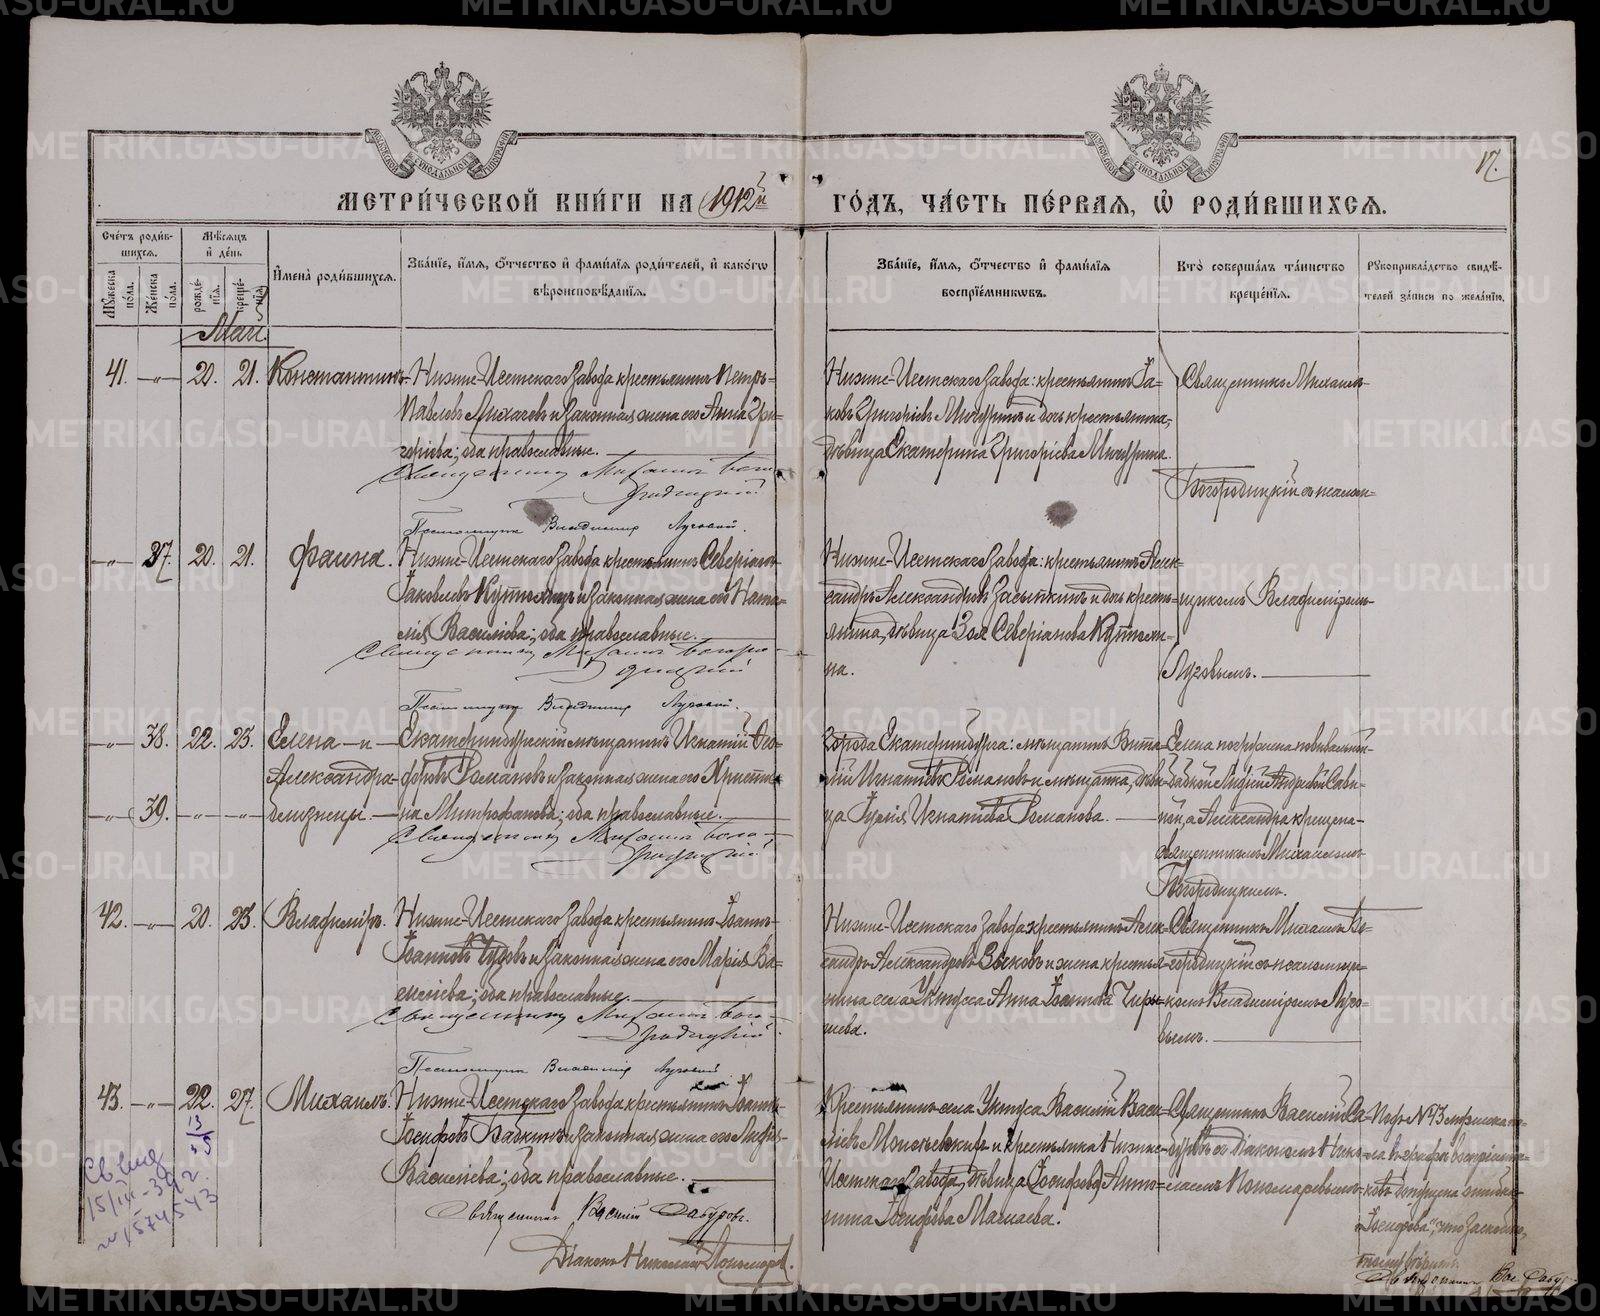 METRIKI.GASO-URAL.RU
17.
МЕТРИ́ЧЕСКОЙ КНИ́ГИ НА 1912й ГО́ДЪ, ЧА́СТЬ ПЕ́РВАЯ, Ѡ҆ РОДИ́ВШИХСЯ.
Сче́тъ роди́в-
шихся.
Мѣ́сяцъ
и҆ де́нь
Му́жеска по́ла.
Же́нска по́ла.
рожде́-
нїя.
креще́-
нїя.
И҆мена̀ роди́вшихся.
Зва́нїе, и҆́мя, ѻ҆́тчество и҆ фами́лїя роди́телей, и҆ како́гѡ
вѣроисповѣ́данїя.
Зва́нїе, и҆́мя, ѻ҆́тчество и҆ фами́лїя
воспрїе́мникѡвъ.
Кто̀ соверша́лъ та́инство
креще́нїя.
Рꙋкоприкла́дство свидѣ́-
телей за́писи по жела́нїю.
Май.
41. —„— 20. 21. Константинъ.
Нижне-Исетскаго завода крестьянинъ Петръ
Павловъ Лихачевъ и законная жена его Анна Гри-
горіева; оба православные.
Священникъ Михаилъ Бого-
родицкій
Псаломщикъ Владимиръ Луговый.
Нижне-Исетскаго завода: крестьянинъ Іа-
ковъ Григоріевъ Мичуринъ и дочь крестьянина,
дѣвица Екатерина Григоріева Мичурина.
Священникъ Михаилъ
Богородицкій съ псалом-
—„— 37. 20. 21. Фаина.
Нижне-Исетскаго завода крестьянинъ Северіанъ
Іаковлевъ Кутюминъ и законная жена его Ната-
лія Василіева; оба православные.
Священникъ Михаилъ Богоро-
дицкій
Псаломщикъ Владимиръ Луговый.
Нижне-Исетскаго завода: крестьянинъ Алек-
сандръ Александровъ Засыпкинъ и дочь кресть-
янина, дѣвица Зоя Северіанова Кутюми-
на.
щикомъ Владиміромъ
Луговымъ.
—„— 38. 22. 23. Елена — и —
Александра
—„— 39. —„— —„— близнецы.
Екатеринбургскій мѣщанинъ Игнатій Ѳео-
форовъ Романовъ и законная жена его Христи-
на Митрофанова; оба православные.
Священникъ Михаилъ Бого-
родицкій
Города Екатеринбурга: мѣщанинъ Вита-
лій Игнатіевъ Романовъ и мѣщанка, дѣви-
ца Іулія Игнатіева Романова.
Елена погружена повивальной
бабкой Лидіей Андреевой Сави-
ной, а Александра крещена
священникомъ Михаиломъ
Богородицкимъ.
42. —„— 20. 23. Владиміръ.
Нижне-Исетскаго завода крестьянинъ Іоаннъ
Іоанновъ Чудовъ и законная жена его Марія Ва-
силіева; оба православные.
Священникъ Михаилъ Бого-
родицкій
Псаломщикъ Владимиръ Луговый
Нижне-Исетскаго завода: крестьянинъ Алек-
сандръ Александровъ Зыковъ и жена крестья-
нина села Уктуса Анна Іоаннова Чиры-
шева.
Священникъ Михаилъ Бо-
городицкій съ псаломщи-
комъ Владиміромъ Луго-
вымъ.
43. —„— 22. 27. Михаилъ.
Нижне-Исетскаго завода крестьянинъ Іоаннъ
Іосифовъ Бабкинъ и законная жена его Лидія
Василіева; оба православные.
Священникъ Василій Сабуровъ.
Діаконъ Николай Пономаревъ.
Крестьянинъ села Уктуса Василій Васи-
ліевъ и крестьянка Нижне-
Исетскаго завода, дѣвица (Іосифова) Анто-
нина Іосифова Машаева.
Священникъ Василій Са-
буровъ съ діакономъ Нико-
лаемъ Пономаревымъ.
Подъ №43 метрики
ла въ графѣ воспріемни-
ковъ допущена ошибка
„Іосифова“, что
Священникъ Вас. Сабур
13/5 59
Св. выд
15/III-39 г.